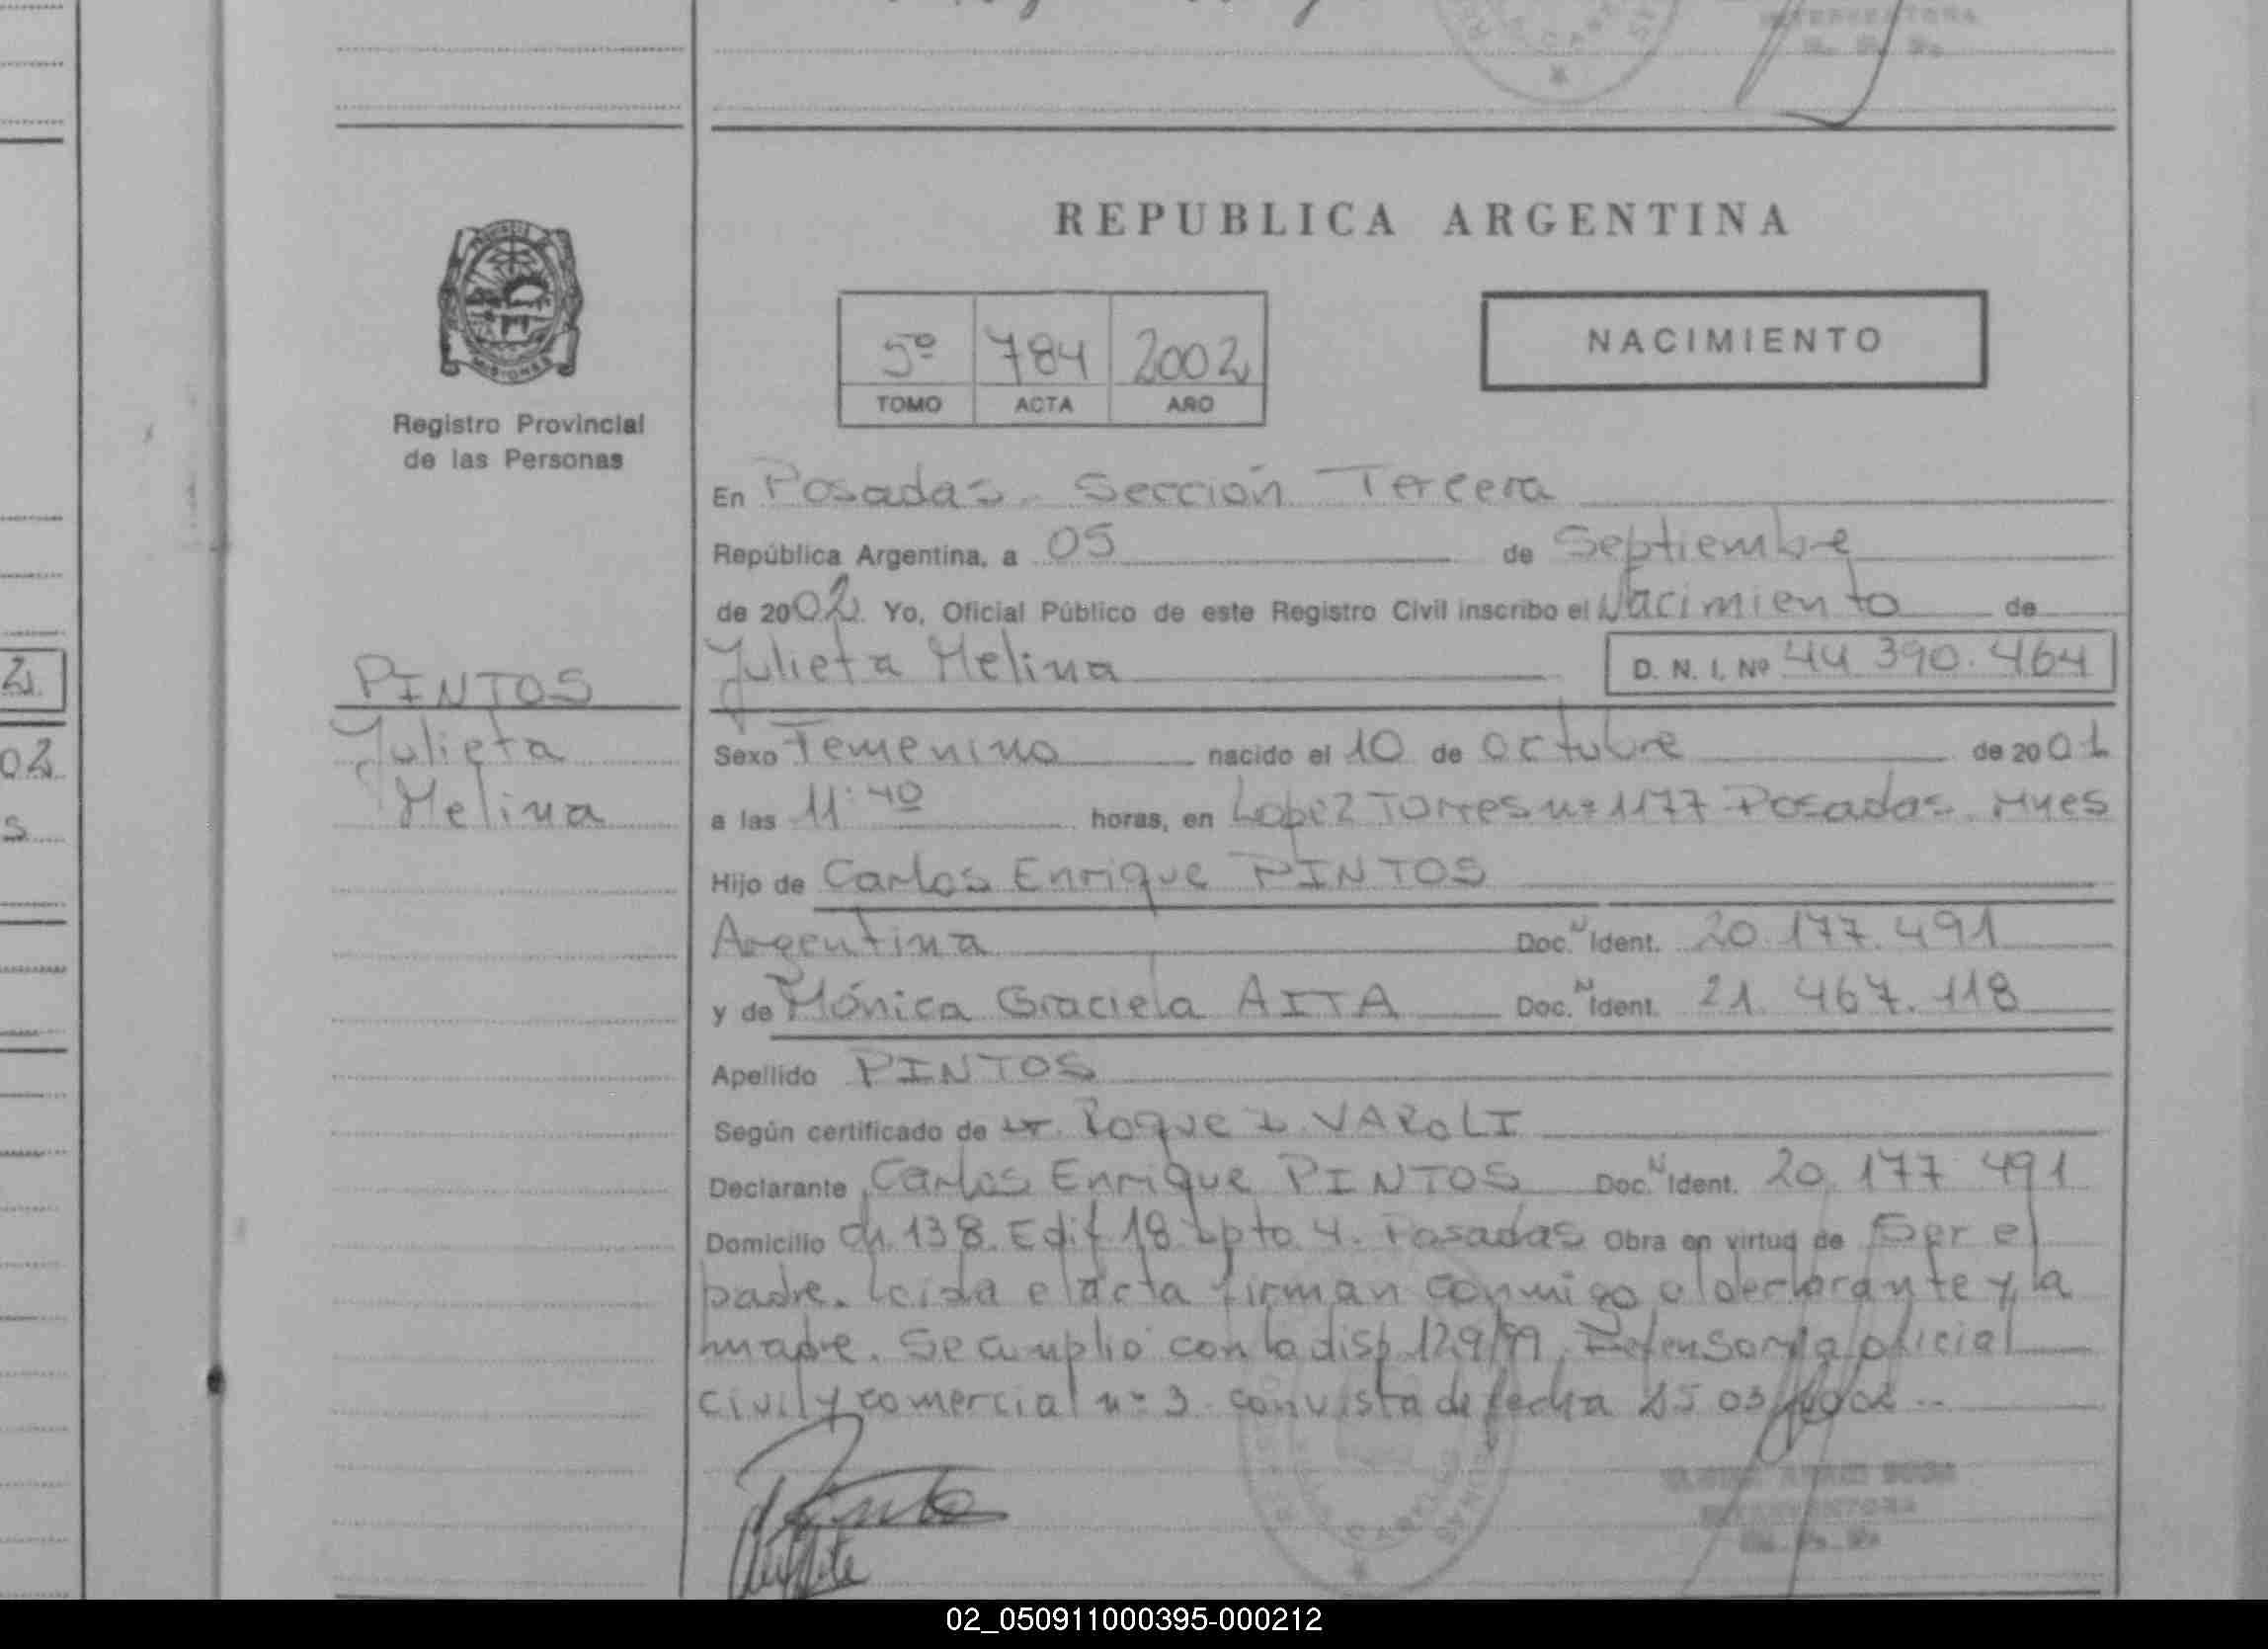 REPUBLICA ARGENTINA
NACIMIENTO
5º 784 2002
TOMO ACTA AÑO
PROVINCIA DE
MISIONES
Registro Provincial
de las Personas
En Posadas. Sección Tercera
República Argentina, a 05 de Septiembre
de 2002. Yo, Oficial Público de este Registro Civil inscribo el Nacimiento de
Julieta Melina D. N. I. Nº 44 390.464
PINTOS
Julieta
Melina
Sexo Femenino nacido el 10 de octubre de 2001
a las 11:40 horas, en Lopez Torres nº 1177 Posadas. Mnes
Hijo de Carlos Enrique PINTOS
Argentina Doc. N Ident. 20.177.491
y de Mónica Graciela AITA Doc. N Ident. 21.467.118
Apellido PINTOS
Según certificado de Dr. Roque VAROLI
Declarante Carlos Enrique PINTOS Doc. N Ident. 20.177 491
Domicilio ch 138. Edif 18 Dpto 4. Posadas Obra en virtud de Ser el
padre. Leida el acta firman conmigo el declarante y la
madre. Se cumplio con la disp 129/99, Defensoria oficial
civil y comercial nº 3 con vista de fecha 15 03 2002..
INTERVENTORA
02
s
02_050911000395-000212